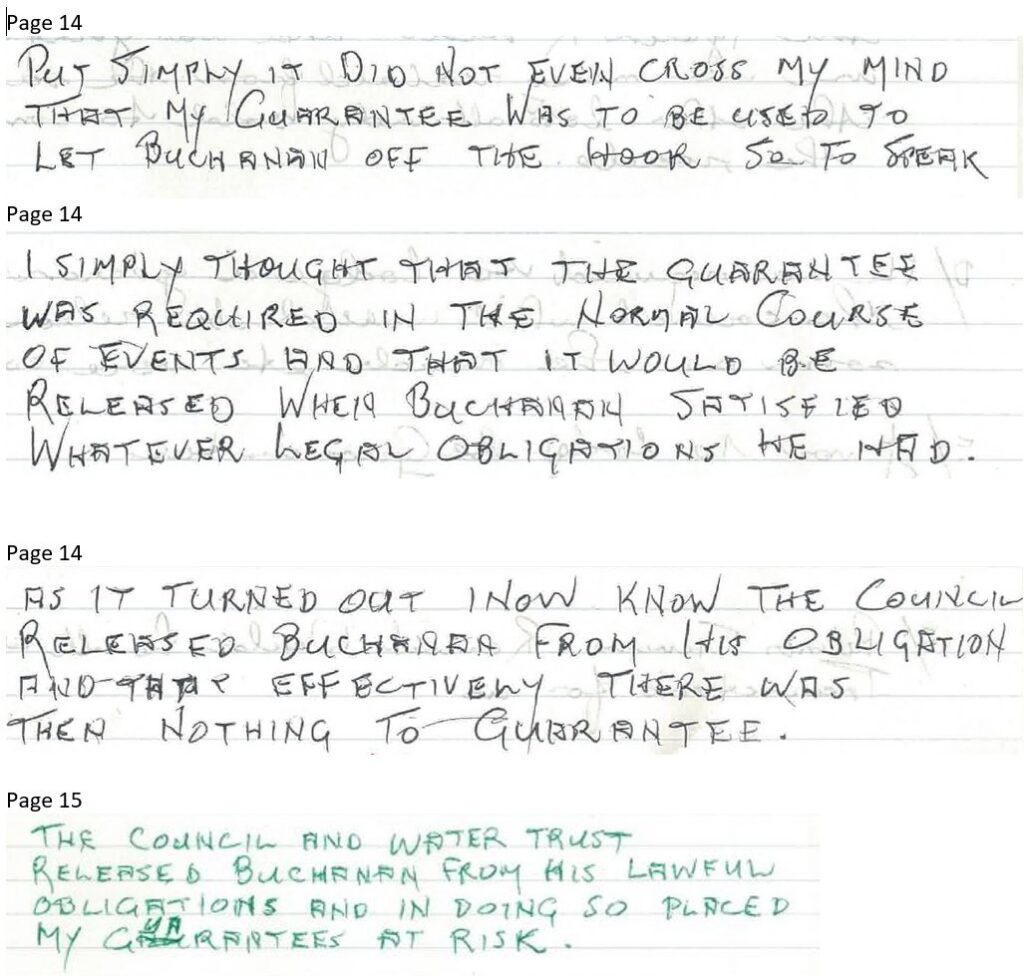 Page 14
PUT SIMPLY IT DID NOT EVEN CROSS MY MIND
THAT MY GUARANTEE WAS TO BE USED TO
LET BUCHANAN OFF THE HOOK SO TO SPEAK
Page 14
I SIMPLY THOUGHT THAT THE GUARANTEE
WAS REQUIRED IN THE NORMAL COURSE
OF EVENTS AND THAT IT WOULD BE
RELEASED WHEN BUCHANAN SATISFIED
WHATEVER LEGAL OBLIGATIONS HE HAD.
Page 14
AS IT TURNED OUT I NOW KNOW THE COUNCIL
RELEASED BUCHANAN FROM HIS OBLIGATION
AND THAT EFFECTIVELY THERE WAS
THEN NOTHING TO GUARANTEE.
Page 15
THE COUNCIL AND WATER TRUST
RELEASED BUCHANAN FROM HIS LAWFUL
OBLIGATIONS AND IN DOING SO PLACED
MY GUARANTEES AT RISK.